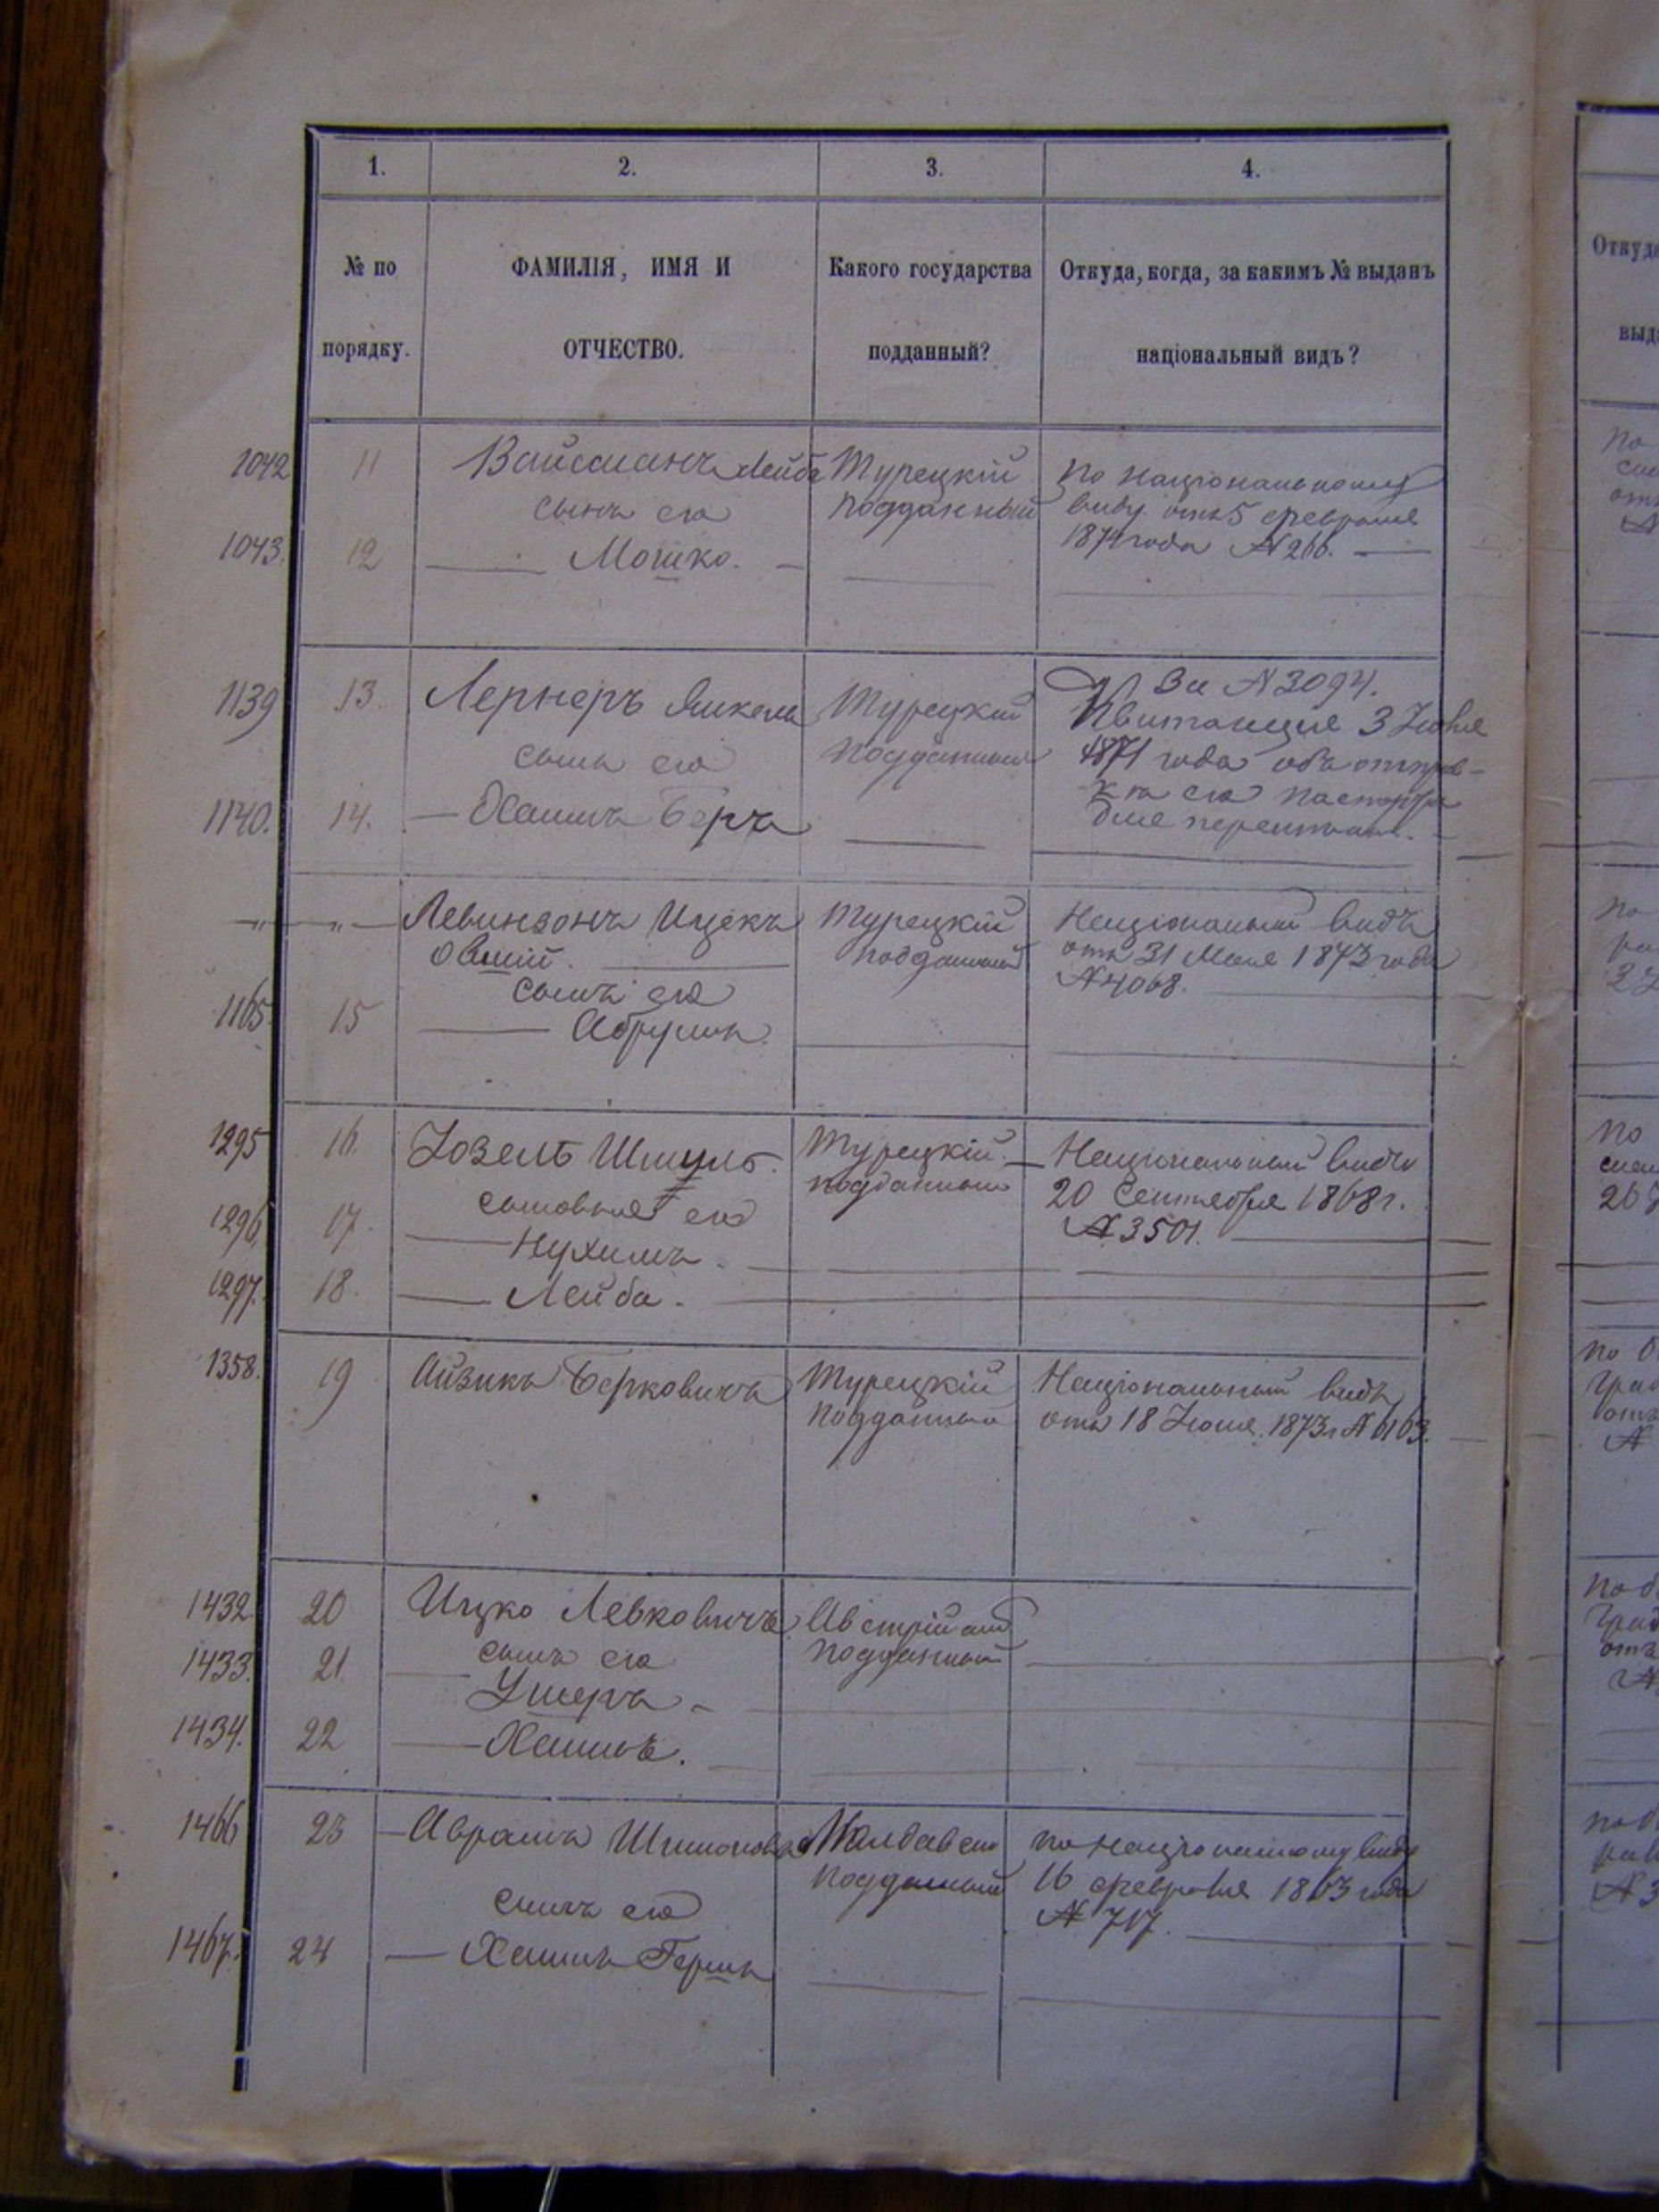 1. 2. 3. 4.
№ по порядку. ФАМИЛІЯ, ИМЯ И ОТЧЕСТВО. Какого государства подданный? Откуда, когда, за какимъ № выданъ національный видъ?
1042 11 Вайсманъ Лейба Турецкій По національному
сынъ его подданный виду отъ 5 февраля
1043. 12 Мошко. 1874 года № 266.
1139 13. Лернеръ Янкель Турецкій За № 3094.
сынъ его подданный Квитанція 3 Іюня
1871 года объ отправ-
1140. 14. Хаимъ Беръ кѣ его паспорта
для перемѣны.
Левинзонъ Ицекъ Турецкій Національный видъ
Овшій. подданный отъ 31 Мая 1873 года
сынъ его № 4068.
1165. 15 Абрумъ.
1295 16. Іозель Шмуль. Турецкій Національный видъ
сыновья его подданный 20 Сентября 1868 г.
1296. 17. Нухимъ. № 3501.
1297. 18. Лейба.
1358. 19 Айзикъ Берковичъ Турецкій Національный видъ
подданный отъ 18 Іюня 1873 г № 6163.
1432 20 Ицко Левковичъ Австрійскій
1433. 21 сынъ его подданный
Ушеръ
1434. 22 Хаимъ.
1466 23 Аврамъ Шимоновъ Молдавскій по національному виду
подданный 16 февраля 1863 года
сынъ его № 717.
1467. 24 Хаимъ Гершъ
Откуда
выд
По
отъ
№
По
По
по
отъ
№
отъ
№